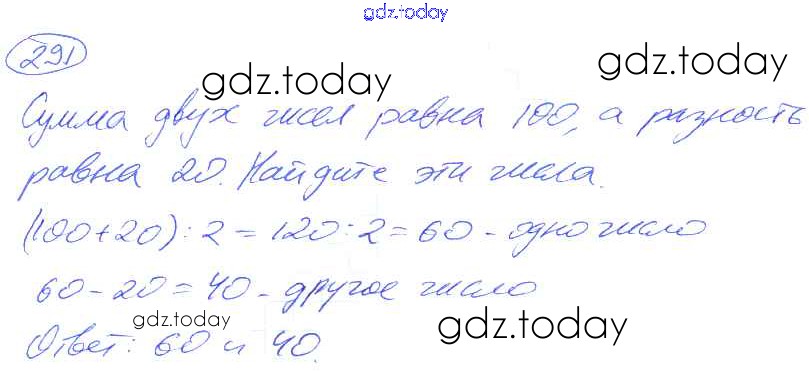 gdz.today
291
gdz.today
gdz.today
Сумма двух чисел равна 100, а разность
равна 20. Найдите эти числа.
(100+20):2=120:2=60 - одно число
60-20=40 - другое число
gdz.today
gdz.today
Ответ: 60 и 40.